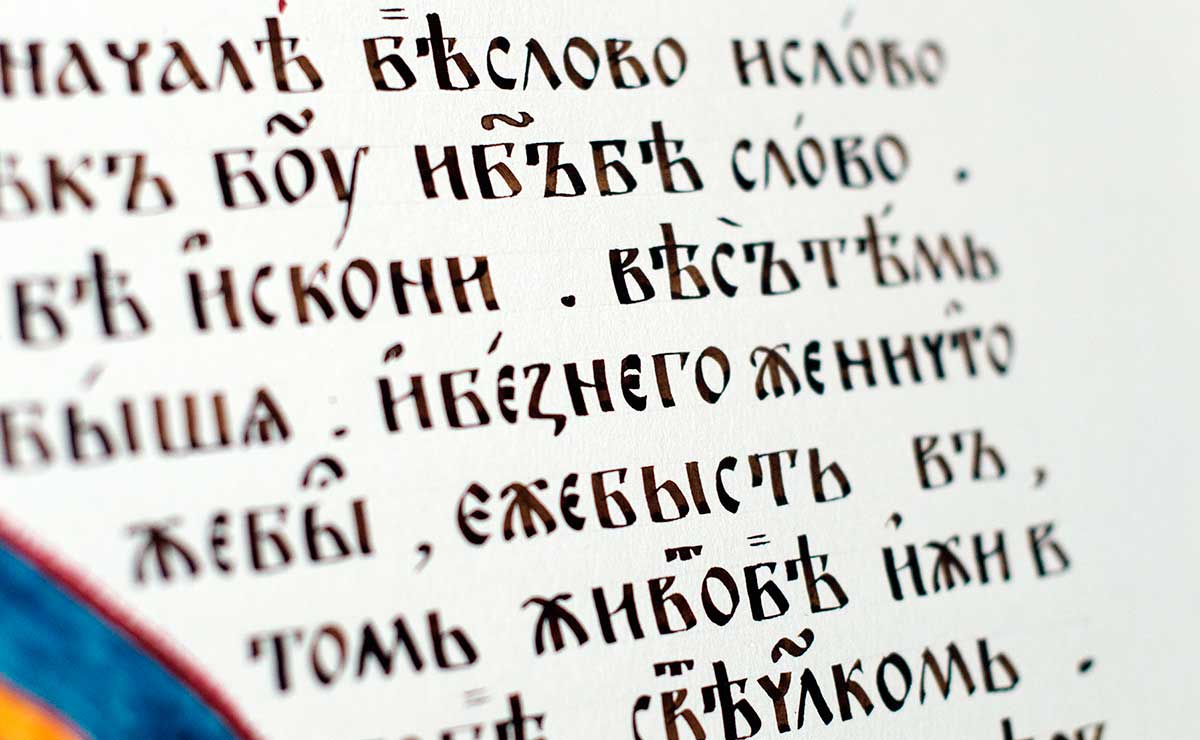 началѣ́ бѣслово исло́во
ѣкъ бо҃у иб҃ъбѣ сло́во .
бѣ и҆скони . вѣсъ̀тѣ́мь
бы́шѧ . и҆бе́ꙁнего женичто̑
жебы̑ , єжебысть въ ,
томь живⷮобѣ и҆жив
свⷮѣч҃лкомь .